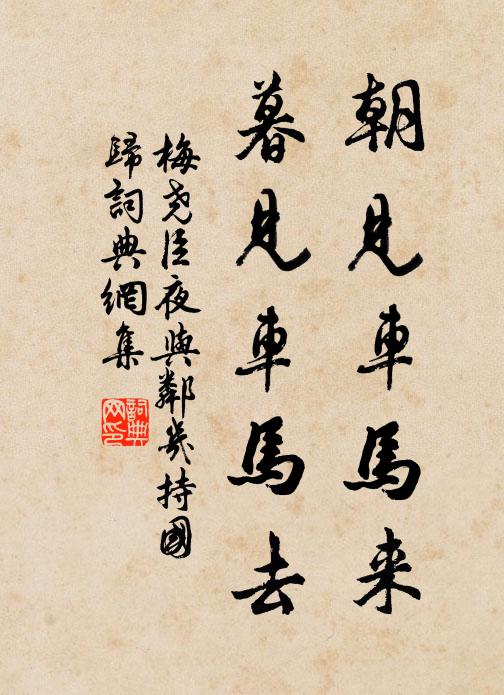 朝見車馬来
暮見車馬去
梅尧臣夜與鄰幾持國
歸詞典網集
詞典网印